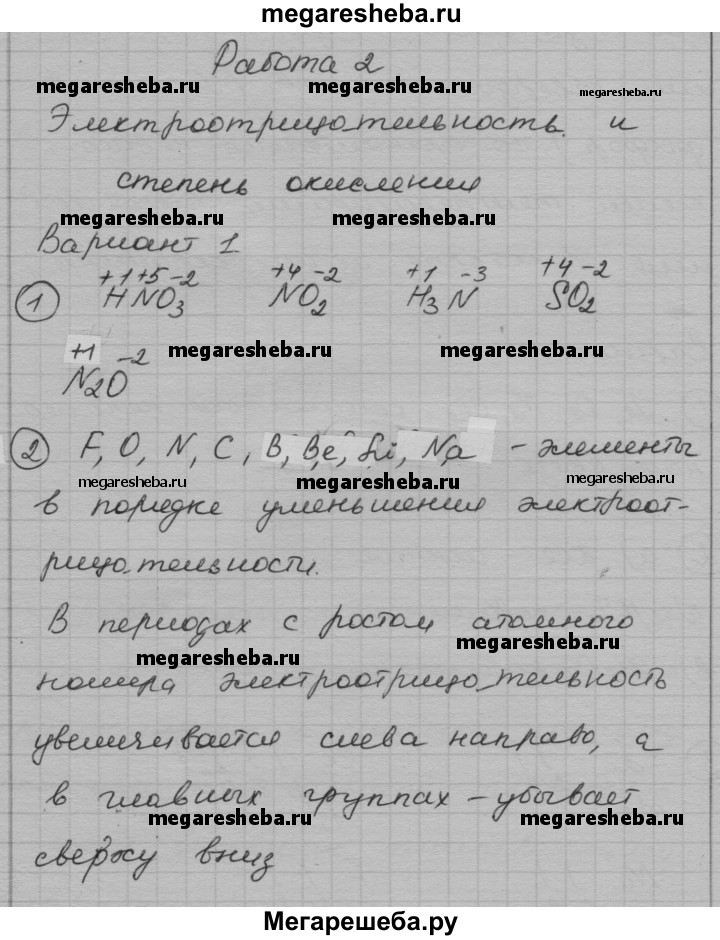 megaresheba.ru
Работа 2
megaresheba.ru megaresheba.ru megaresheba.ru
Электроотрицательность и
степень окисления
megaresheba.ru megaresheba.ru
Вариант 1
+1+5-2 +4 -2 +1 -3 +4 -2
1 HNO3 NO2 H3N SO2
+1 -2 megaresheba.ru megaresheba.ru
N2O
2 F, O, N, C, B, Be, Li, Na - элементы
megaresheba.ru megaresheba.ru megaresheba.ru
в порядке уменьшения электроот-
рицательности.
В периодах с ростом атомного
megaresheba.ru megaresheba.ru
номера электроотрицательность
увеличивается слева направо, а
в главных группах - убывает
megaresheba.ru megaresheba.ru
сверху вниз
Мегарешеба.ру